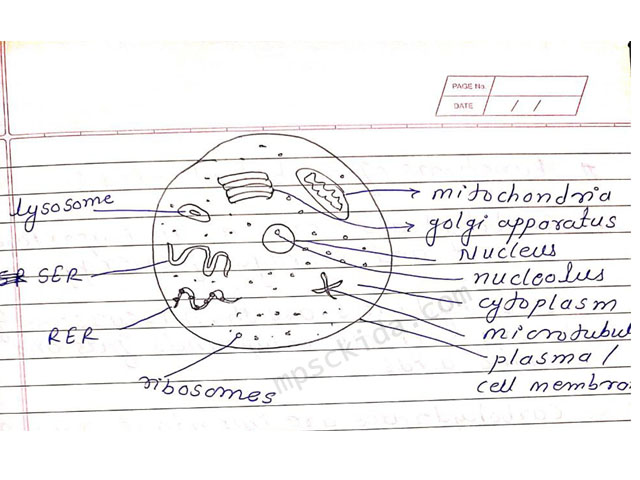 PAGE No.
DATE / /
lysosome
SER
RER
ribosomes
mitochondria
golgi apparatus
Nucleus
nucleolus
cytoplasm
microtubul
plasma /
cell membran
mpsckida.com